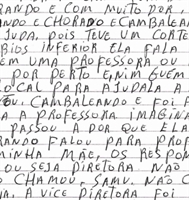 RANDO E COM MUITO DOR,
ENDO E CHORADO E CAMBALEA
JUDA, POIS TEVE UM CORTE
BIOS INFERIOR ELA FALA
EM UMA PROFESSORA OU
POR PERTO E NIM GUÉM
LOCAL PARA AJUDALA A
OU, CAMBALEANDO E FOI A
A A PROFESSORA IMAGINA
PASSOU A DOR QUE ELA
RANDO FALOU PARA PROF
MINHA MÃE, OS RESPON
OU SEJA DIRETORA NÃO
O CHAMOU, SAMU. NÃO C
A. A VICE DIRETORA FOI